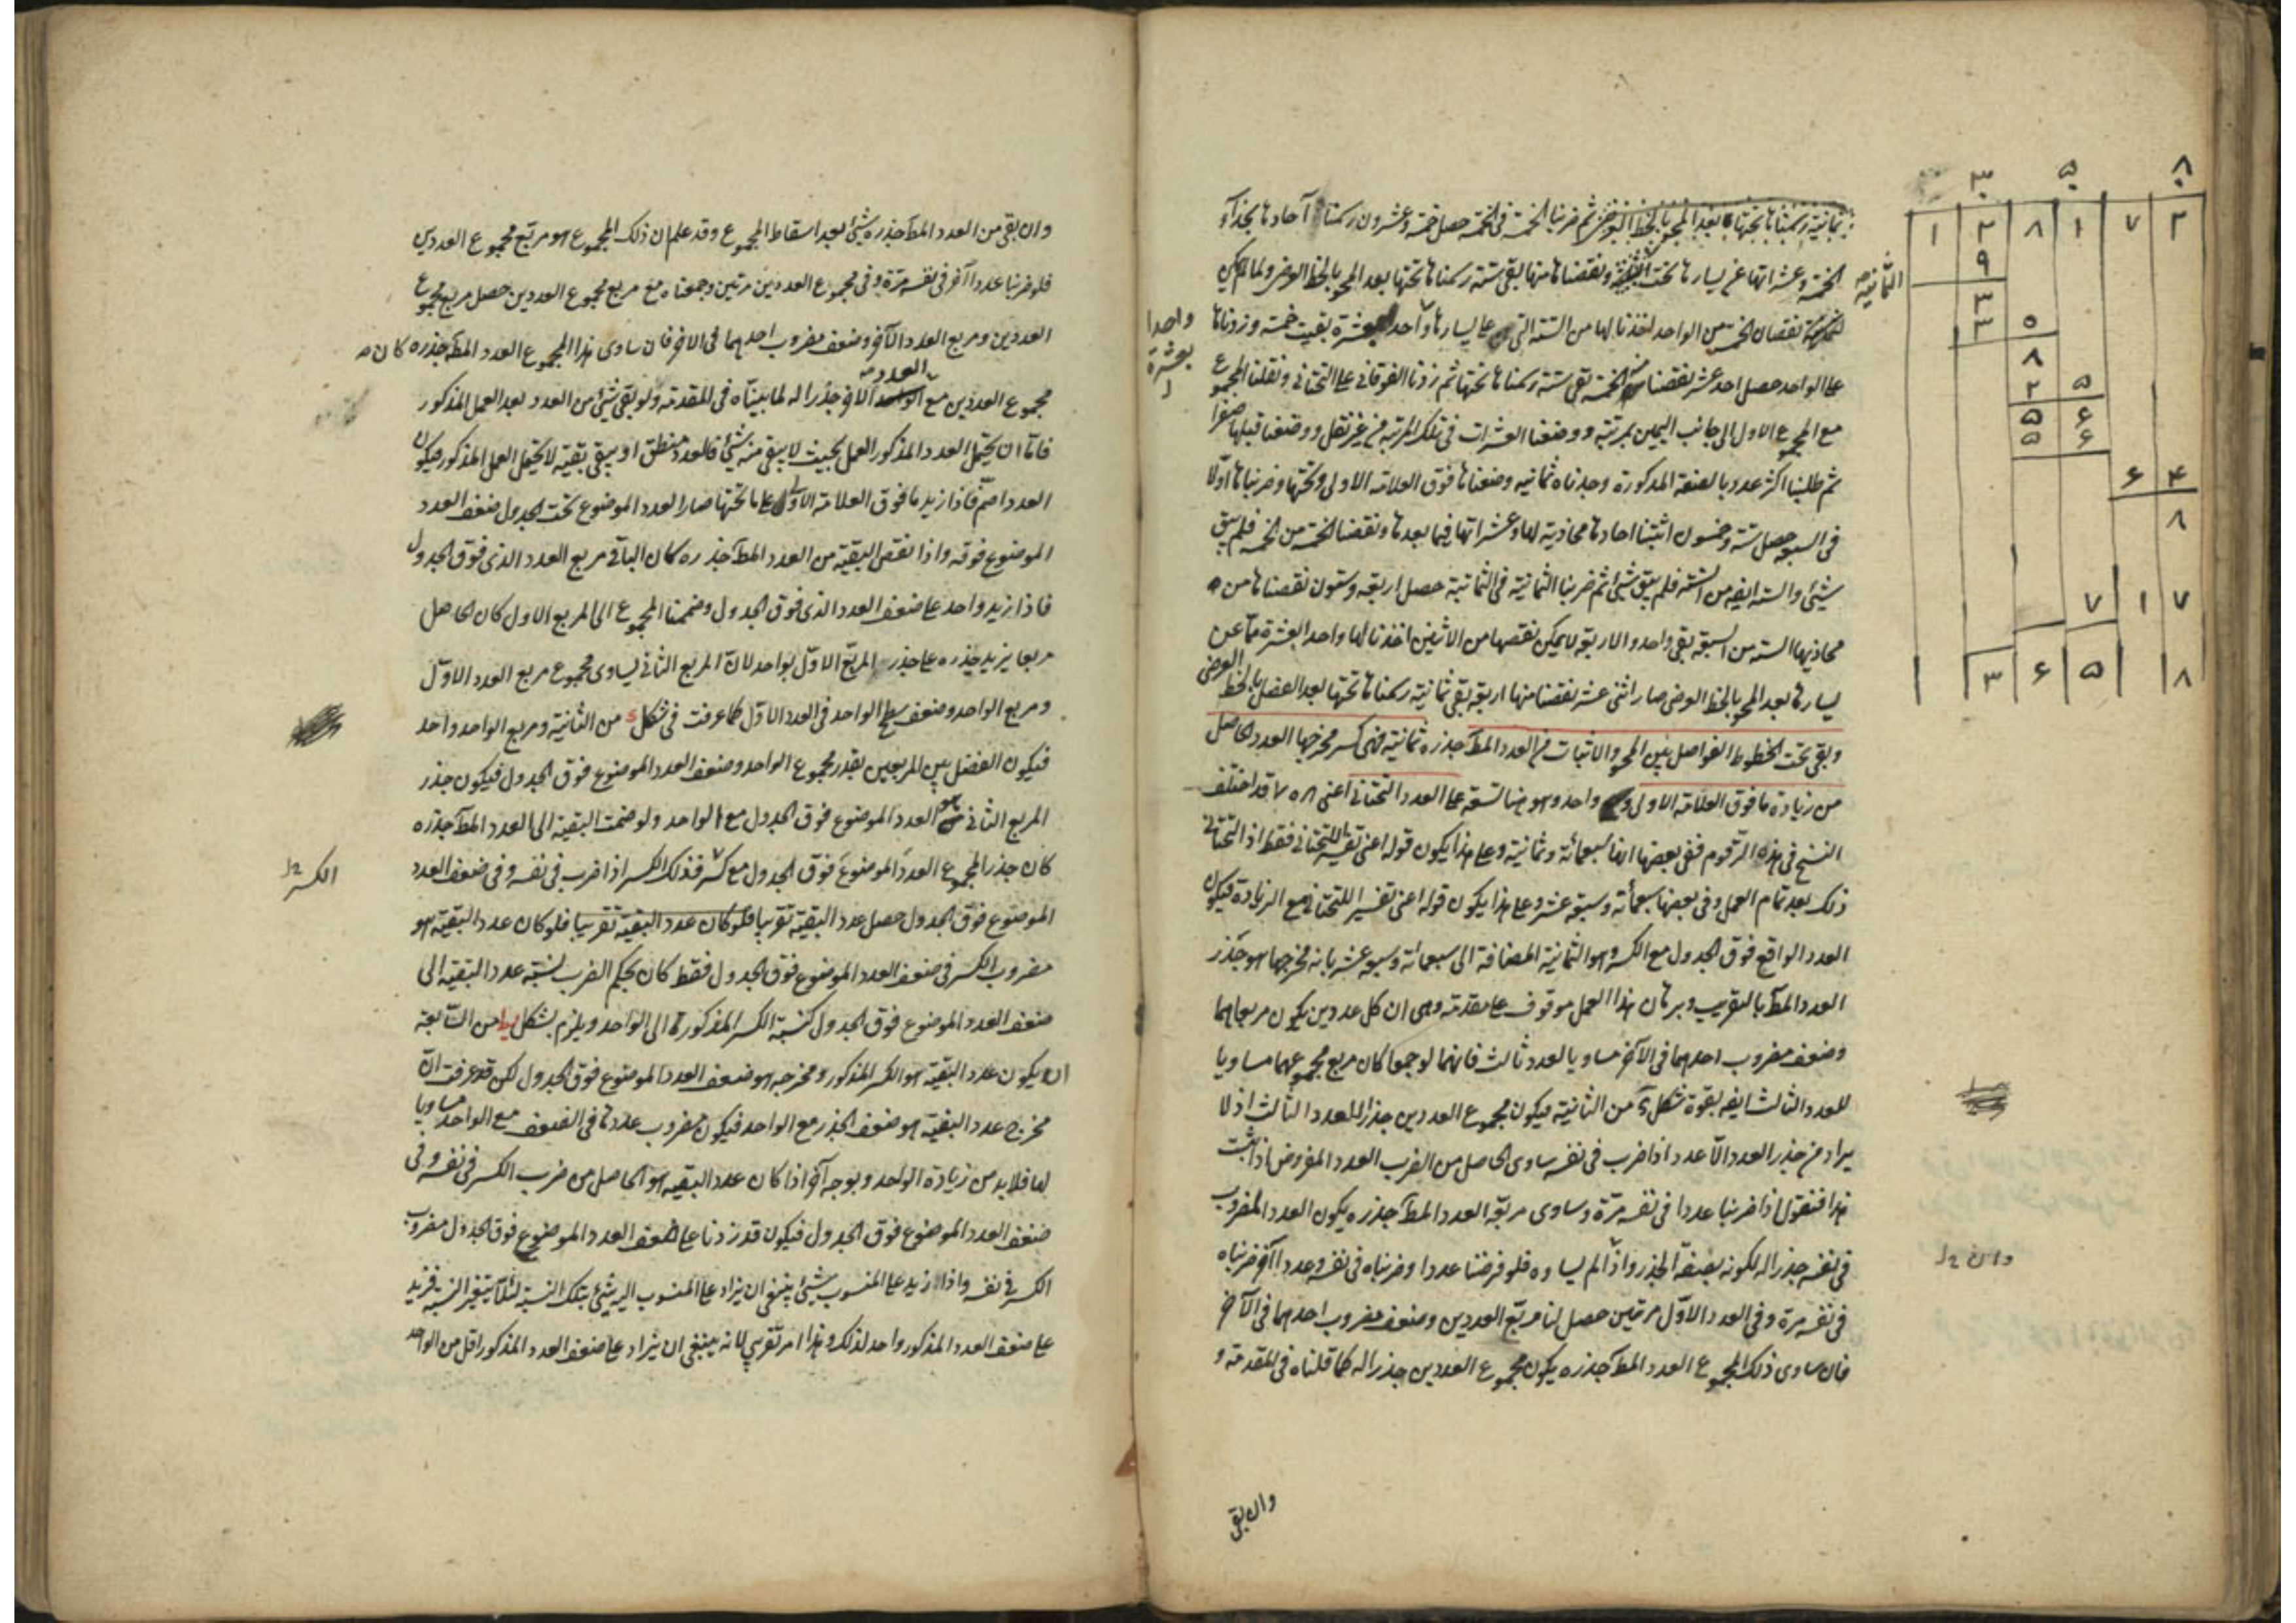 ۳ ۵ ۸
۱ ۲ ۸ ۱ ۷ ۲
۹
۳
۳ ۵
۸
۲ ۵
۵ ۶
۵ ۶
۶ ۴
۸
۷ ۱ ۷
۳ ۶ ۵ ۸
الثمانية
بثمانية رسمناها تحتها بعد المحو بالخط العرضى ثم ضربنا الخمسة فى الخمسة حصل خمسة وعشرون رسمنا آحادها بحذاء
الخمسة وعشراتها عن يسارها تحت ونقصناها منها بقى ستة رسمناها تحتها بعد المحو بالخط العرضى ولما لم يكن
نقصان الخمسة من الواحد اخذنا لها من الستة التى على يسارها واحدا بعشرة بقيت خمسة وزدناها
واحدا
بعشرة
على الواحد حصل احد عشر نقصنا منه الخمسة بقى ستة رسمناها تحتها ثم زدنا الفوقانى على التحتانى ونقلنا المجموع
مع المجموع الاول الى جانب اليمين بمرتبة ووضعنا العشرات فى تلك المرتبة من غير نقل ووضعنا قبلها صفرا
ثم طلبنا اكثر عدد بالصفة المذكورة وجدناه ثمانية وضعناها فوق العلامة الاولى وتحتها وضربناها اولا
فى السبعة حصل ستة وخمسون اثبتنا احادها محاذية لها وعشراتها فيما بعدها ونقصنا الخمسة من الخمسة فلم يبق
شيئ والستة ايضا من الستة فلم يبق شيئ ثم ضربنا الثمانية فى الثمانية حصل اربعة وستون نقصناها من
محاذيها الستة من السبعة بقى واحد والاربعة لا يمكن نقصها من الاثنين اخذنا لها واحدا بعشرة مما عن
يسارها بعد المحو بالخط العرضى صار اثنى عشر نقصنا منها اربعة بقى ثمانية رسمناها تحتها بعد الفصل بالخط العرضى
وبقى تحت الخطوط الفواصل بين المحو والاثبات من العدد المط جذره ثمانية فهى كسر مخرجها العدد الحاصل
من زيادة ما فوق العلامة الاولى و واحد وهو هنا تسعة على العدد التحتانى اعنى ۷۰۸ قد اختلف
النسخ فى هذه الرقوم ففى بعضها سبعمائة وثمانية وعلى هذا يكون قوله اعنى تفسيرا للتحتانى فقط اذ التحتانى
ذلك بعد تمام العمل وفى بعضها سبعمائة وسبعة عشر وعلى هذا يكون قوله اعنى تفسيرا للتحتانى مع الزيادة فيكون
العدد الواقع فوق الجدول مع الكسر وهو الثمانية المضافة الى سبعمائة وسبعة عشر بانه مخرجها هو جذر
العدد المط بالتقريب وبرهان هذا العمل موقوف على مقدمة وهى ان كل عددين يكون مربعاهما
وضعف مضروب احدهما فى الآخر مساويا لعدد ثالث فانهما لو جمعا كان مربع مجموعهما مساويا
للعدد الثالث ايضا بقوة شكل من الثانية فيكون مجموع العددين جذرا للعدد الثالث اذ لا
يراد من جذر العدد الا عدد اذا ضرب فى نفسه ساوى الحاصل من الضرب العدد المفروض اذا ثبت
هذا فنقول اذا ضربنا عددا فى نفسه مرة وساوى مربعه العدد المط جذره يكون العدد المضروب
فى نفسه جذرا له لكونه بصفة الجذر واذا لم يساوه فلو فرضنا عددا وضربناه فى نفسه وعددا آخر ضربناه
وان
فى نفسه مرة وفى العدد الاول مرتين حصل لنا مربع العددين وضعف مضروب احدهما فى الآخر
فان ساوى ذلك المجموع العدد المط جذره يكون مجموع العددين جذرا له كما قلناه فى المقدمة و
وان بقى
وان بقى من العدد المط جذره شيئ بعد اسقاط المجموع وقد علم ان ذلك المجموع هو مربع مجموع العددين
فلو ضربنا عددا آخر فى نفسه مرة وفى مجموع العددين مرتين وجمعناه مع مربع مجموع العددين حصل مربع مجموع
العددين ومربع العدد الآخر وضعف مضروب احدهما فى الاخر فان ساوى هذا المجموع العدد المط جذره كان
مجموع العددين مع العدد الآخر جذرا له لما بيناه فى المقدمة ولو بقى شيئ من العدد بعد العمل المذكور
فاما ان يحتمل العدد المذكور العمل بحيث لا يبقى منه شيئ فالعدد منطق او يبقى بقية لا يحتمل العمل المذكور فيكون
العدد اصم فاذا زيد ما فوق العلامة الاولى على ما تحتها صار العدد الموضوع تحت الجدول ضعف العدد
الموضوع فوقه واذا نقص البقية من العدد المط جذره كان الباقى مربع العدد الذى فوق الجدول
فاذا زيد واحد على ضعف العدد الذى فوق الجدول وضممنا المجموع الى المربع الاول كان الحاصل
مربعا يزيد جذره على جذر المربع الاول بواحد لان المربع الثانى يساوى مجموع مربع العدد الاول
ومربع الواحد وضعف سطح الواحد فى العدد الاول كما عرفت فى شكل من الثانية ومربع الواحد واحد
فيكون الفضل بين المربعين بقدر مجموع الواحد وضعف العدد الموضوع فوق الجدول فيكون جذر
المربع الثانى هو العدد الموضوع فوق الجدول مع الواحد ولو ضمت البقية الى العدد المط جذره
كان جذر المجموع العدد الموضوع فوق الجدول مع كسر فذلك الكسر اذا ضرب فى نفسه وفى ضعف العدد
الكسر
الموضوع فوق الجدول حصل عدد البقية تقريبا فلو كان عدد البقية تقريبا فلو كان عدد البقية هو
مضروب الكسر فى ضعف العدد الموضوع فوق الجدول فقط كان بحكم الضرب نسبة عدد البقية الى
ضعف العدد الموضوع فوق الجدول كنسبة الكسر المذكور الى الواحد ويلزم بشكل من السابعة
ان يكون عدد البقية هو الكسر المذكور ومخرجه هو ضعف العدد الموضوع فوق الجدول لكن قد عرفت ان
مخرج عدد البقية هو ضعف الجذر مع الواحد فيكون مضروب عددها فى الضعف مع الواحد مساويا
لها فلا بد من زيادة الواحد وبوجه آخر اذا كان عدد البقية هو الحاصل من ضرب الكسر فى نفسه وفى
ضعف العدد الموضوع فوق الجدول فيكون قد زدنا على ضعف العدد الموضوع فوق الجدول مضروب
الكسر فى نفسه واذا زيد على المنسوب شيئ ينبغى ان يزاد على المنسوب اليه شيئ بتلك النسبة لئلا يتغير النسبة فزيد
على ضعف العدد المذكور واحد لذلك وهذا امر تقريبى لانه ينبغى ان يزاد على ضعف العدد المذكور اقل من الواحد